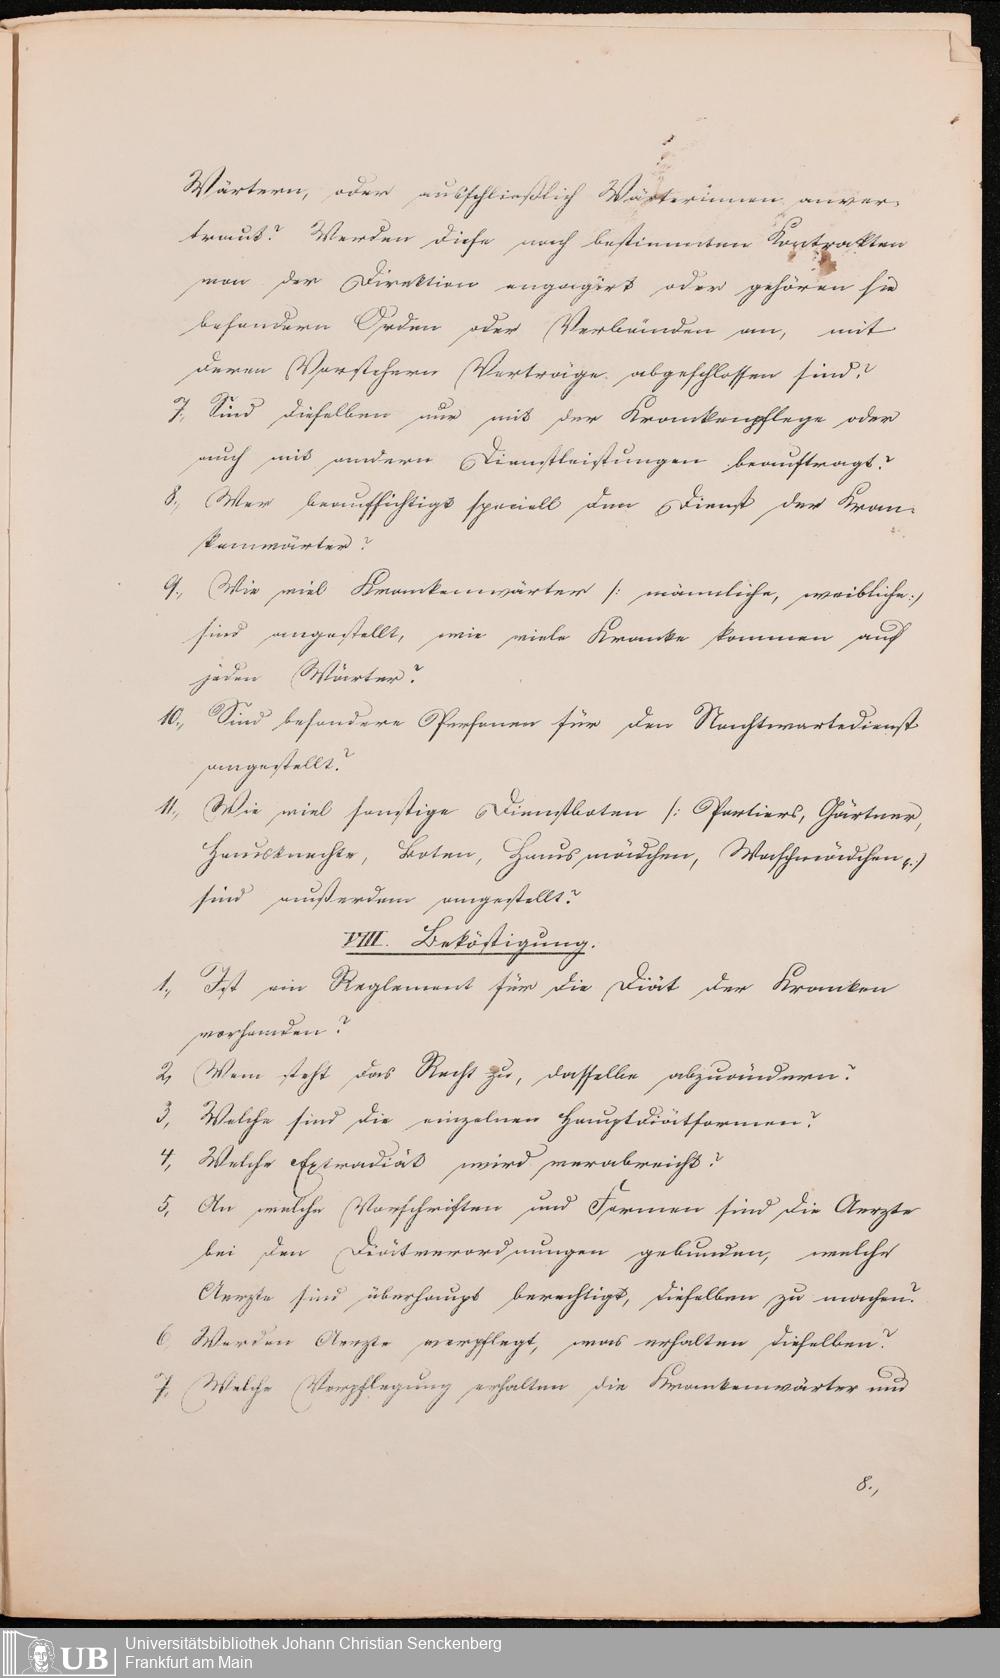 Wärtern, oder ausschließlich Wärterinnen anver-
traut? Werden diese nach bestimmten Kontrakten
von der Direktion engagirt oder gehören sie
besondern Orden oder Verbänden an, mit
deren Vorstehern Verträge abgeschlossen sind?
7., Sind dieselben nur mit der Krankenpflege oder
auch mit andern Dienstleistungen beauftragt?
8., Wer beaufsichtigt speciell den Dienst der Kran-
kenwärter?
9., Wie viel Krankenwärter /: männliche, weibliche :/
sind angestellt, wie viele Kranke kommen auf
jeden Wärter?
10., Sind besondere Personen für den Nachtwartedienst
angestellt?
11., Wie viel sonstige Dienstboten /: Portiers, Gärtner,
Hausknechte, Boten, Hausmädchen, Waschmädchen :/
sind außerdem angestellt?
VIII. Beköstigung.
1., Ist ein Reglement für die Diät der Kranken
vorhanden?
2, Wem steht das Recht zu, dasselbe abzuändern?
3, Welche sind die einzelnen Hauptdiätformen?
4, Welche Extradiät wird verabreicht?
5, An welche Vorschriften und Formen sind die Aerzte
bei den Diätverordnungen gebunden, welche
Aerzte sind überhaupt berechtigt, dieselben zu machen?
6 Werden Aerzte verpflegt, was erhalten dieselben?
7, Welche Verpflegung erhalten die Krankenwärter und
8.,
UB
Universitätsbibliothek Johann Christian Senckenberg
Frankfurt am Main